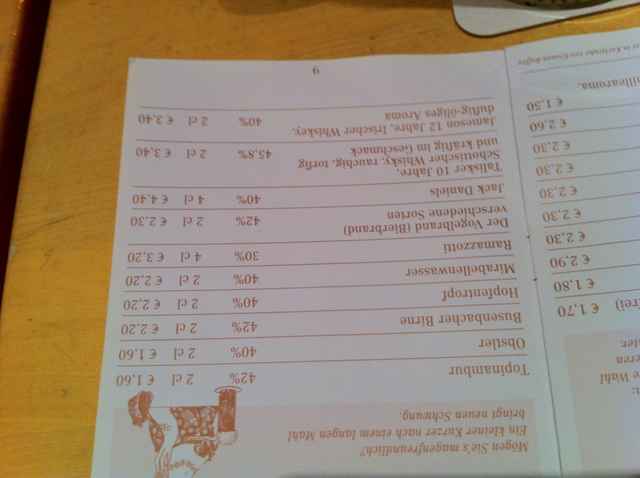 Wahl
frei) € 1,70
€ 1,80
€ 2,90
€ 2,30
€ 2,30
€ 2,30
€ 2,30
€ 2,30
€ 2,60
€ 1,50
Mögen Sie's magenfreundlich?
Ein kleiner Kurzer nach einem langen Mahl
bringt neuen Schwung.
Topinambur 42% 2 cl € 1,60
Obstler 40% 2 cl € 1,60
Busenbacher Birne 42% 2 cl € 2,20
Hopfentropf 40% 2 cl € 2,20
Mirabellenwasser 40% 2 cl € 2,20
Ramazzotti 30% 4 cl € 3,20
Der Vogelbrand (Bierbrand)
verschiedene Sorten 42% 2 cl € 2,30
Jack Daniels 40% 4 cl € 4,40
Talisker 10 Jahre,
Schottischer Whisky, rauchig, torfig
und kräftig im Geschmack 45,8% 2 cl € 3,40
Jameson 12 Jahre, Irischer Whiskey,
duftig-öliges Aroma 40% 2 cl € 3,40
9